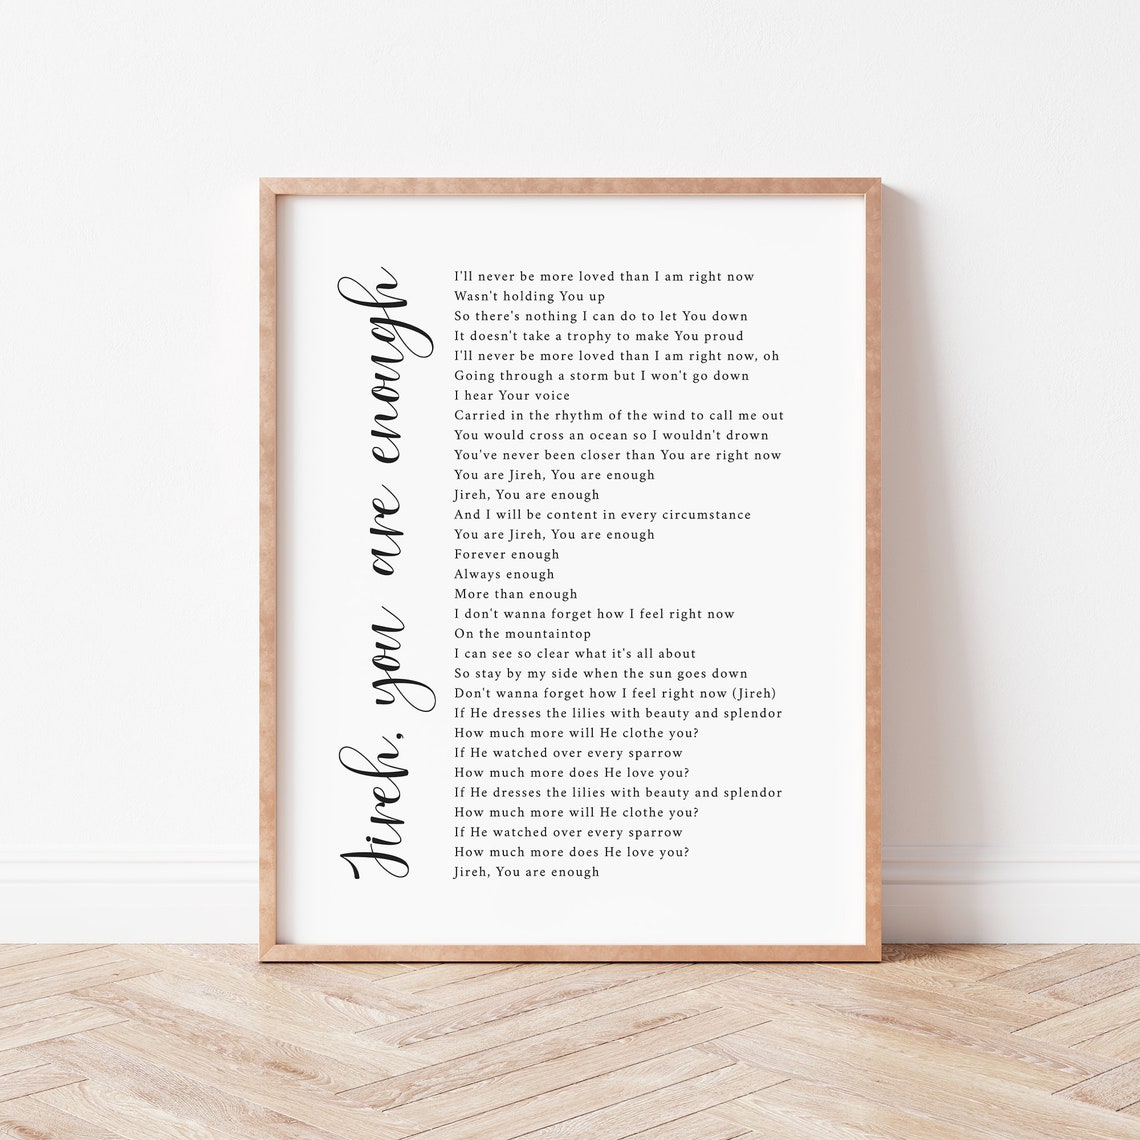 Jireh, you are enough
I'll never be more loved than I am right now
Wasn't holding You up
So there's nothing I can do to let You down
It doesn't take a trophy to make You proud
I'll never be more loved than I am right now, oh
Going through a storm but I won't go down
I hear Your voice
Carried in the rhythm of the wind to call me out
You would cross an ocean so I wouldn't drown
You've never been closer than You are right now
You are Jireh, You are enough
Jireh, You are enough
And I will be content in every circumstance
You are Jireh, You are enough
Forever enough
Always enough
More than enough
I don't wanna forget how I feel right now
On the mountaintop
I can see so clear what it's all about
So stay by my side when the sun goes down
Don't wanna forget how I feel right now (Jireh)
If He dresses the lilies with beauty and splendor
How much more will He clothe you?
If He watched over every sparrow
How much more does He love you?
If He dresses the lilies with beauty and splendor
How much more will He clothe you?
If He watched over every sparrow
How much more does He love you?
Jireh, You are enough